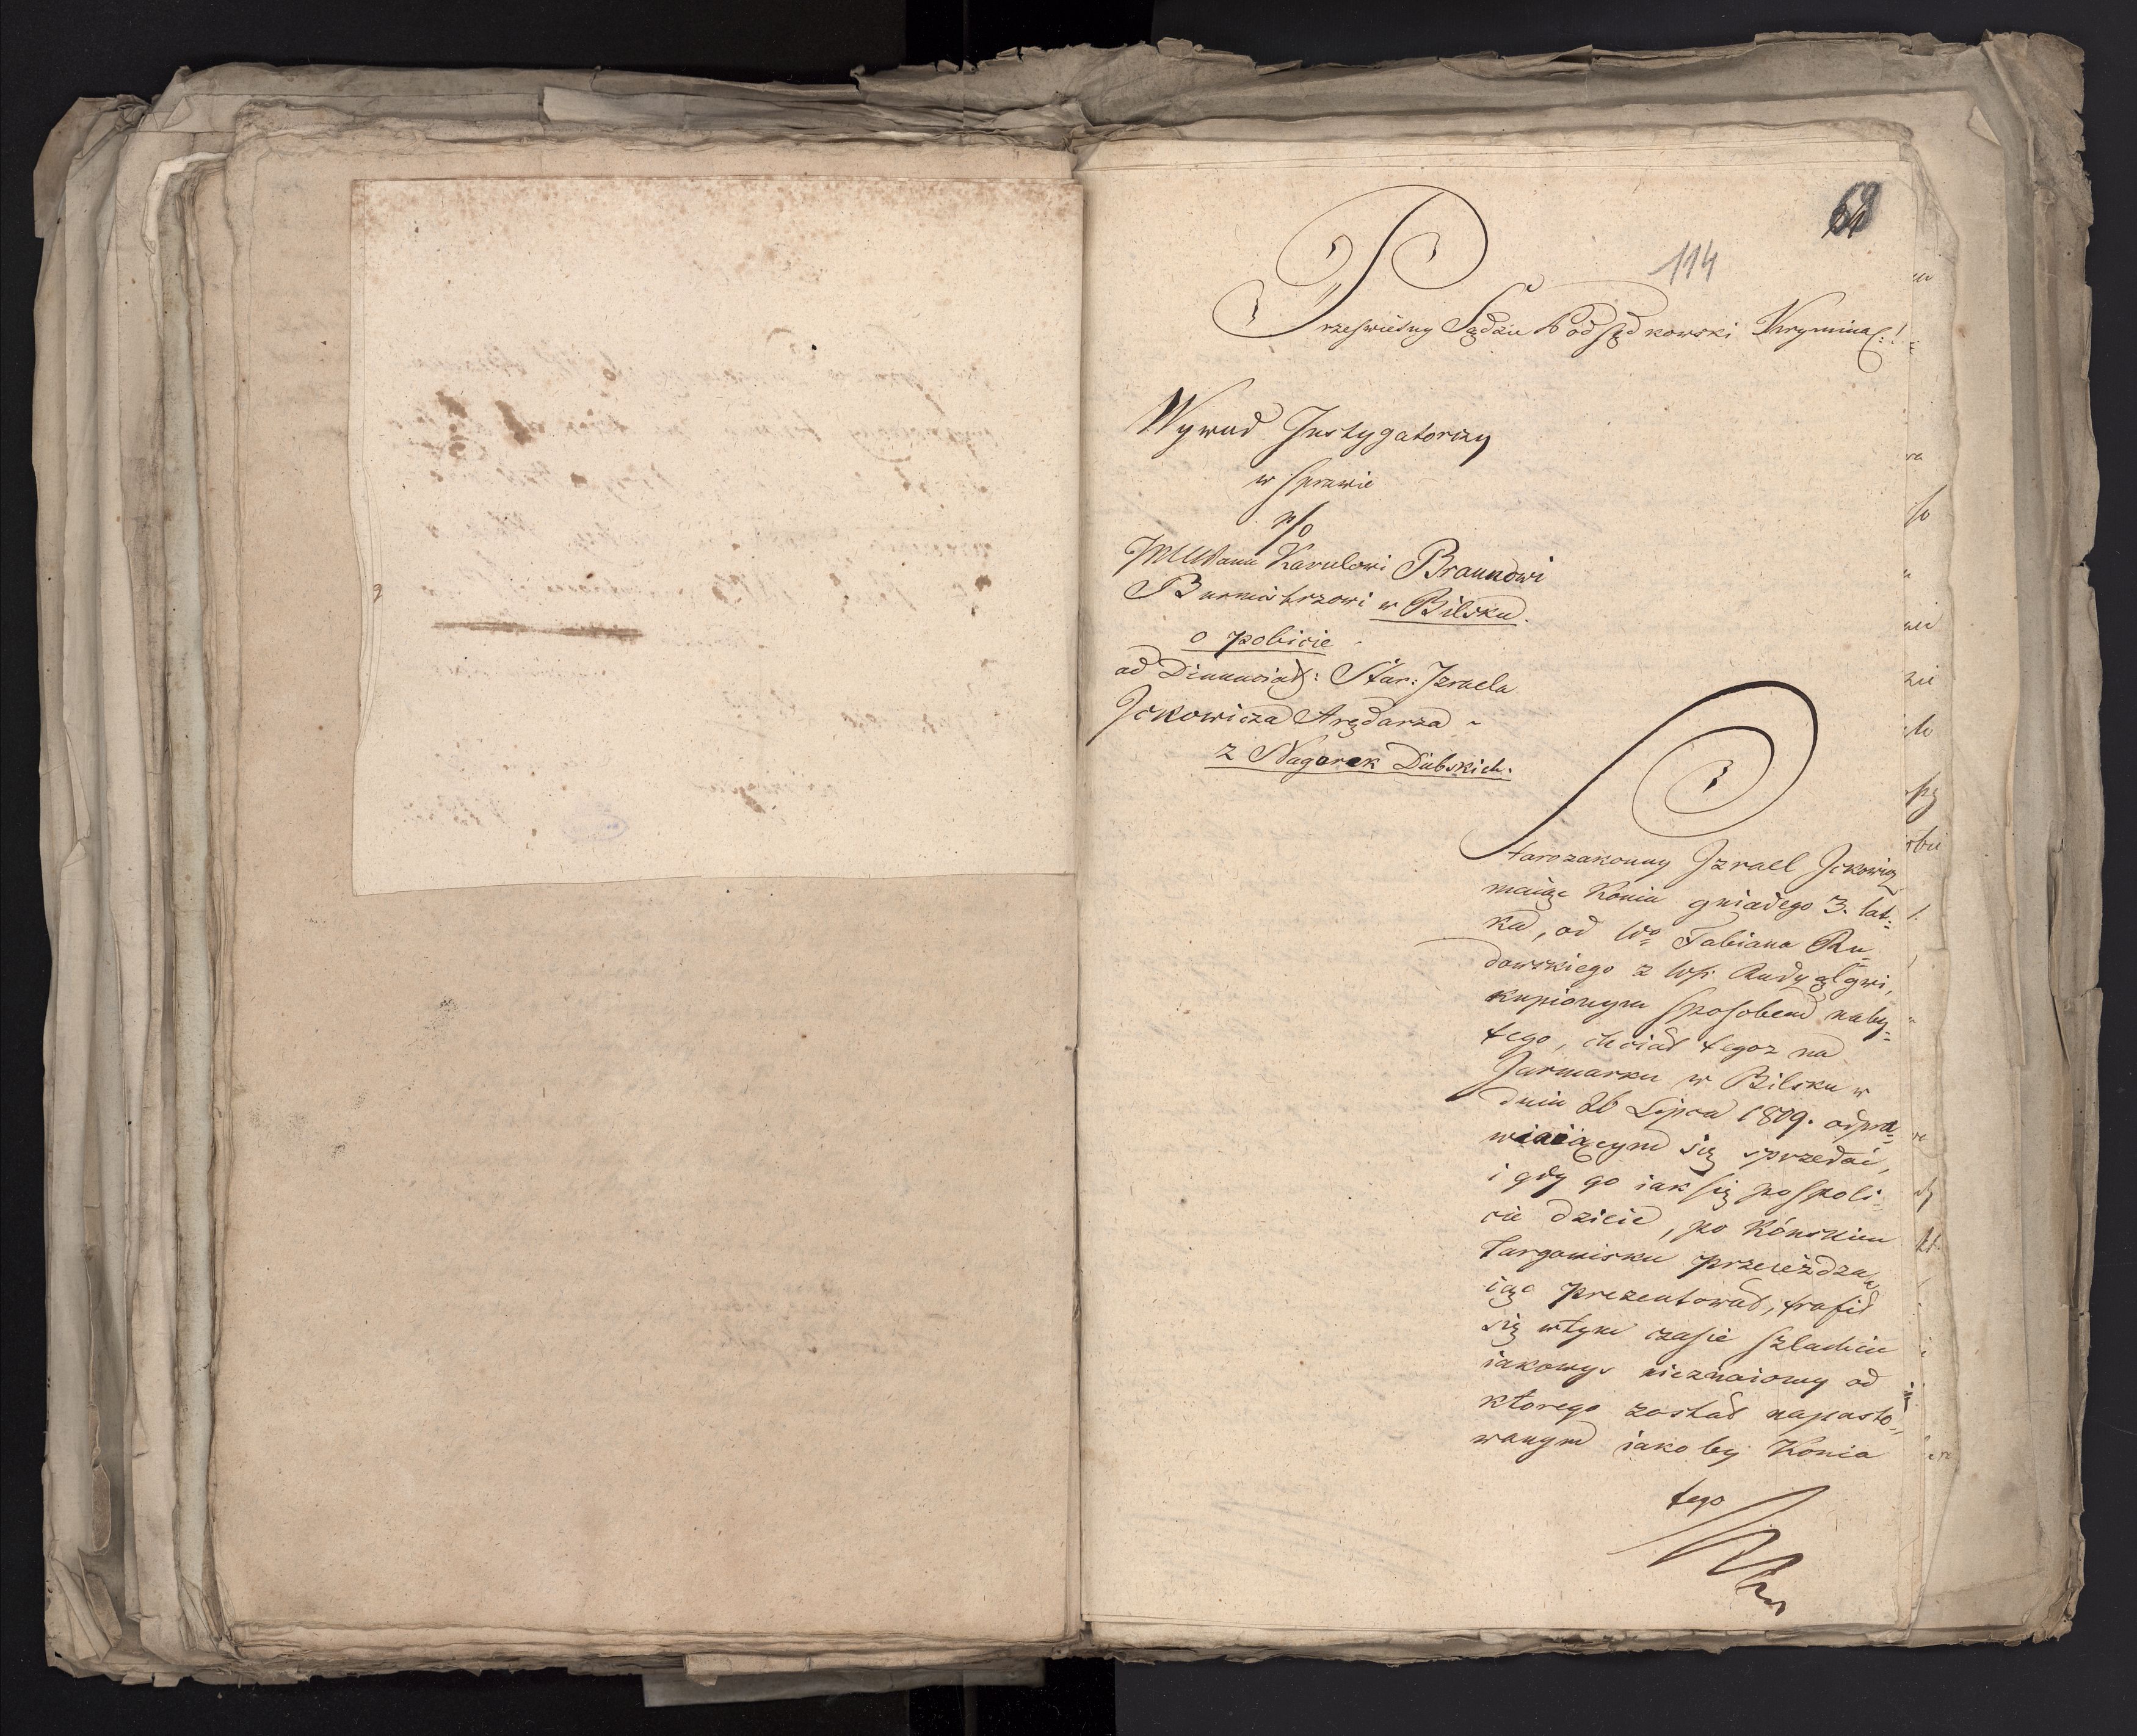 68
114
Prześwietny Sądzie Podsędkowski Kryminal:!
Wywud Instygatorczy
w sprawie
p/o
Karulowi Braunowi
Burmistrzowi w Bilsku.
o pobicie
ad Dinunciat: Star: Izraela
Ickowicza Arędarza ~
z Nagorek Dübskich.
Starozakonny Izrael Ickowicz
maiąc Konia gniadego 3. lat=
ka, od Wo Fabiana Ru=
dowskiego z Wsi Rudy
kupionym sposobem naby=
tego, chciał tegoz na
Jarmarku w Bilsku w
dniu 26 Lipca 1809. odpra=
wiaiącym się sprzedać,
i gdy go iak się pospoli=
cie dzieie, po Kónskim
Targowisku przeieżdza=
iąc prezentował, trafił
się wtym czasie szlachcic
iakowys nieznaiomy od
ktorego został napasto=
wanym iakoby Konia
tego